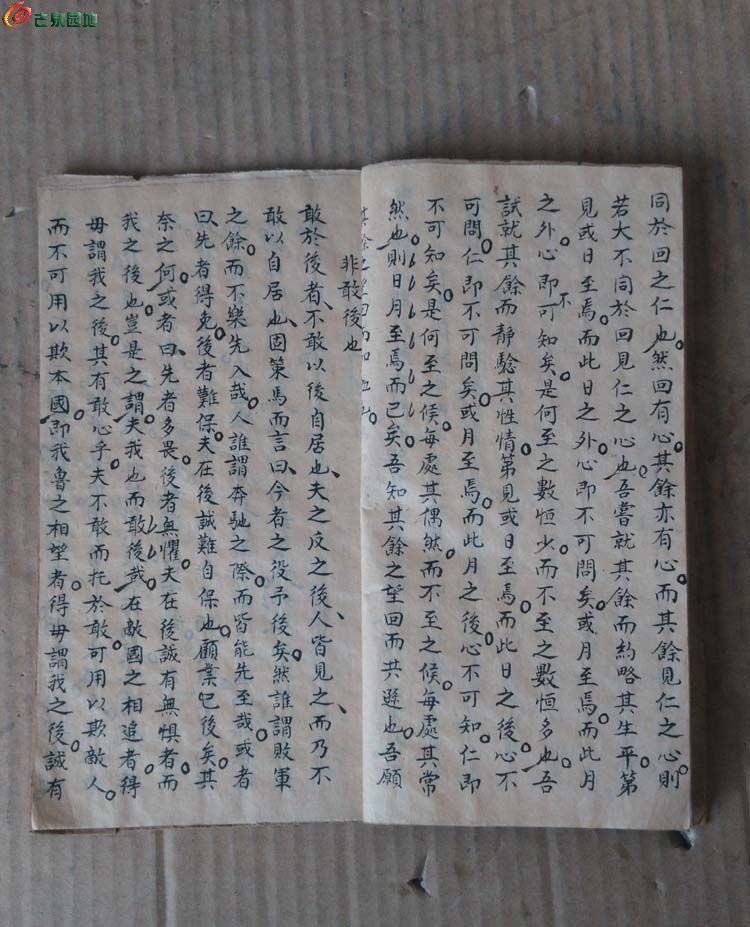 古泉园地
同於回之仁也然回有心其餘亦有心而其餘見仁之心則
若大不同於回見仁之心也吾嘗就其餘而約略其生平第
見或日至焉而此日之外心即不可問矣或月至焉而此月
之外心即不可知矣是何至之數恒少而不至之數恒多也吾
試就其餘而靜驗其性情第見或日至焉而此日之後心不
可問仁即不可問矣或月至焉而此月之後心不可知仁即
不可知矣是何至之候每處其偶然而不至之候每處其常
然也則日月至焉而已矣吾知其餘之望回而共遜也吾願
其餘之望回而
非敢後也
敢於後者不敢以後自居也夫之反之後人皆見之而乃不
敢以自居也固策馬而言曰今者之役予後矣然誰謂敗軍
之餘而不樂先入哉人誰謂奔馳之際而皆能先至哉或者
曰先者得免後者難保夫在後誠難自保也顧業已後矣其
奈之何或者曰先者多畏後者無懼夫在後誠有無惧者而
我之後也豈是之謂夫我也而敢後哉在敵國之相追者得
毋謂我之後其有敢心乎夫不敢而托於敢可用以欺敵人
而不可用以欺本國即我魯之相望者得毋謂我之後誠有